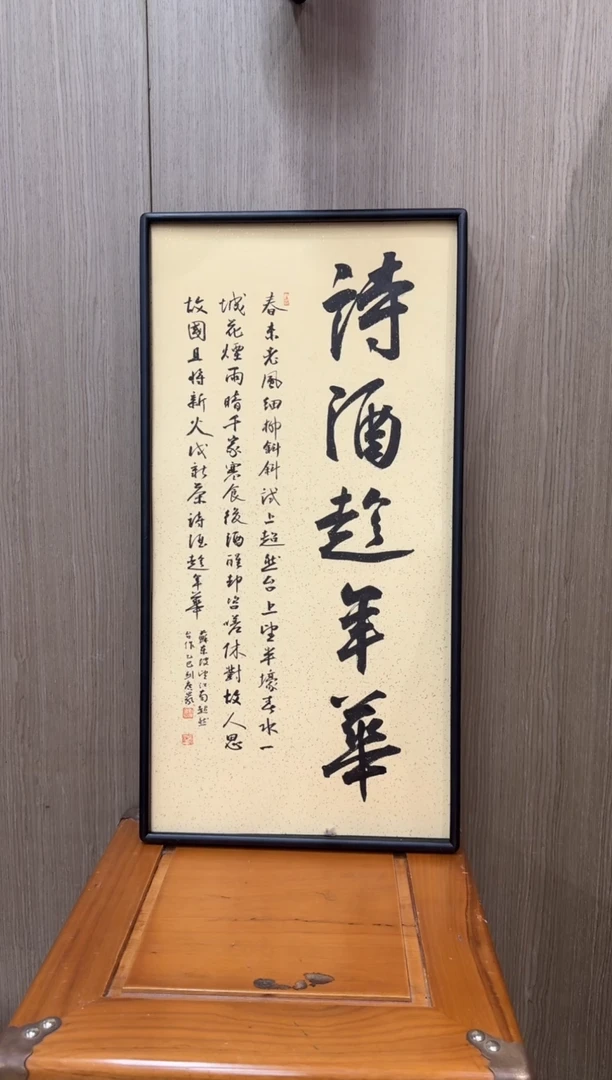 詩酒趁年華
春未老風細柳斜斜試上超然台上望半壕春水一
城花煙雨暗千家寒食後酒醒却咨嗟休對故人思
故國且將新火試新茶詩酒趁年華
蘇東坡望江南超然
台作乙巳